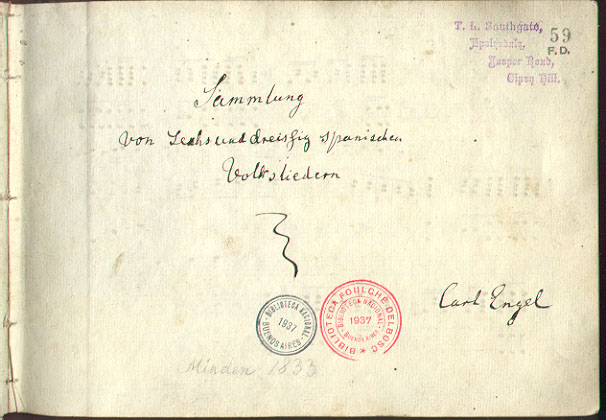 T. L. Southgate,
59
F.D.
Jasper Road,
Gipsy Hill.
Sammlung
von Sechsunddreiszig spanischen
Volksliedern
Carl Engel
BIBLIOTECA NACIONAL
1937
BUENOS AIRES
BIBLIOTECA FOULCHÉ-DELBOSC
BIBLIOTECA NACIONAL
1937
BUENOS AIRES
Minden 1833